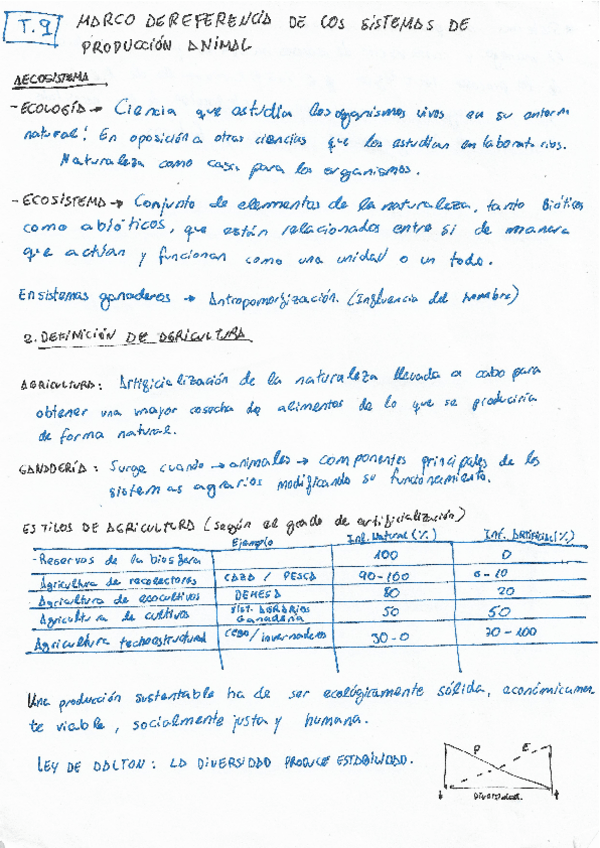 T.9 MARCO DE REFERENCIA DE LOS SISTEMAS DE
PRODUCCIÓN ANIMAL
AECOSISTEMA
- ECOLOGÍA → Ciencia que estudia los organismos vivos en su entorno
natural! En oposición a otras ciencias que los estudian en laboratorios.
Naturaleza como casa para los organismos.
- ECOSISTEMA → Conjunto de elementos de la naturaleza, tanto Bióticos
como abióticos, que están relacionados entre si de manera
que actúan y funcionan como una unidad o un todo.
En sistemas ganaderos → Antropomorfización. (Influencia del hombre)
2. DEFINICIÓN DE AGRICULTURA
AGRICULTURA: Artificialización de la naturaleza llevada a cabo para
obtener una mayor cosecha de alimentos de lo que se produciría
de forma natural.
GANADERÍA: Surge cuando → animales → componentes principales de los
sistemas agrarios modificando su funcionamiento.
ESTILOS DE AGRICULTURA (según el grado de artificialización)
Ejemplo Inf. Natural (%) Inf. Artificial (%)
- Reservas de la biosfera 100 0
Agricultura de recolectores CAZA / PESCA 90-100 0-10
Agricultura de ecocultivos DEHESA 80 20
Agricultura de cultivos SIST. AGRARIOS Ganadería 50 50
Agricultura tecnoestructural CEBO / invernaderos 30-0 70-100
Una producción sustentable ha de ser ecológicamente sólida, económicamen
te viable, socialmente justa y humana.
LEY DE DALTON: LA DIVERSIDAD PRODUCE ESTABILIDAD.
P E
Diversidad